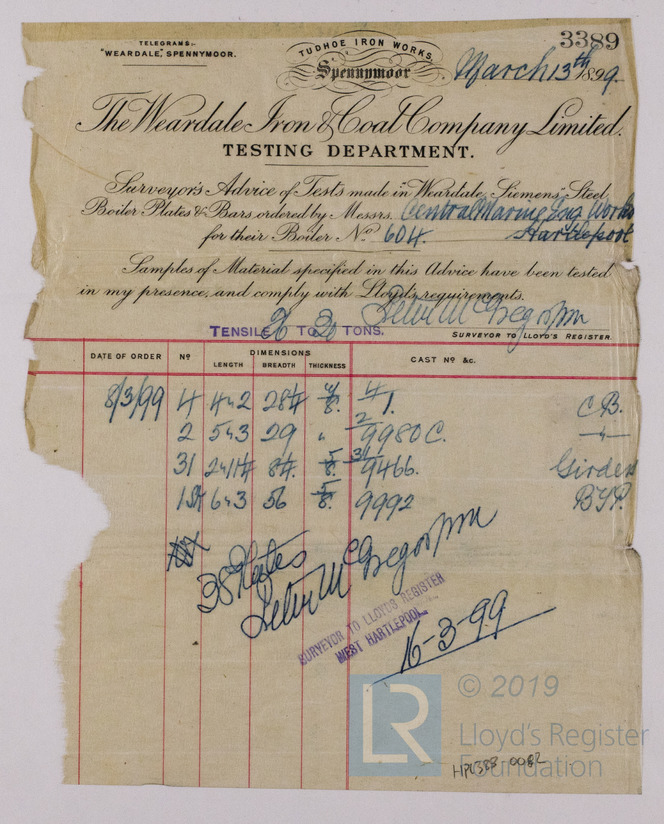 TELEGRAMS:-
"WEARDALE," SPENNYMOOR.
TUDHOE IRON WORKS,
Spennymoor
3389
March 13th 1899.
The Weardale Iron & Coal Company Limited.
TESTING DEPARTMENT.
Surveyor's Advice of Tests made in Weardale, Siemens-Steel
Boiler Plates & Bars, ordered by Messrs. Central Marine Eng. Works
for their Boiler No. 604. Hartlepool
Samples of Material specified in this Advice have been tested
in my presence, and comply with Lloyd's requirements.
Peter McGregor
TENSILE 26 TO 30 TONS.
SURVEYOR TO LLOYD'S REGISTER.
DATE OF ORDER No DIMENSIONS CAST No &c.
LENGTH BREADTH THICKNESS
8/3/99 4 4 28 8. 4 1. C.B.
2 5 3 29 " 2 9980 C. "
31 2 8 5/8. 31 9466. Girders
1 6 3 56 5/8. 9992
38 Plates
Peter McGregor
SURVEYOR TO LLOYD'S REGISTER
WEST HARTLEPOOL.
16-3-99
LR
© 2019
Lloyd's Register
Foundation
HPL388-0082